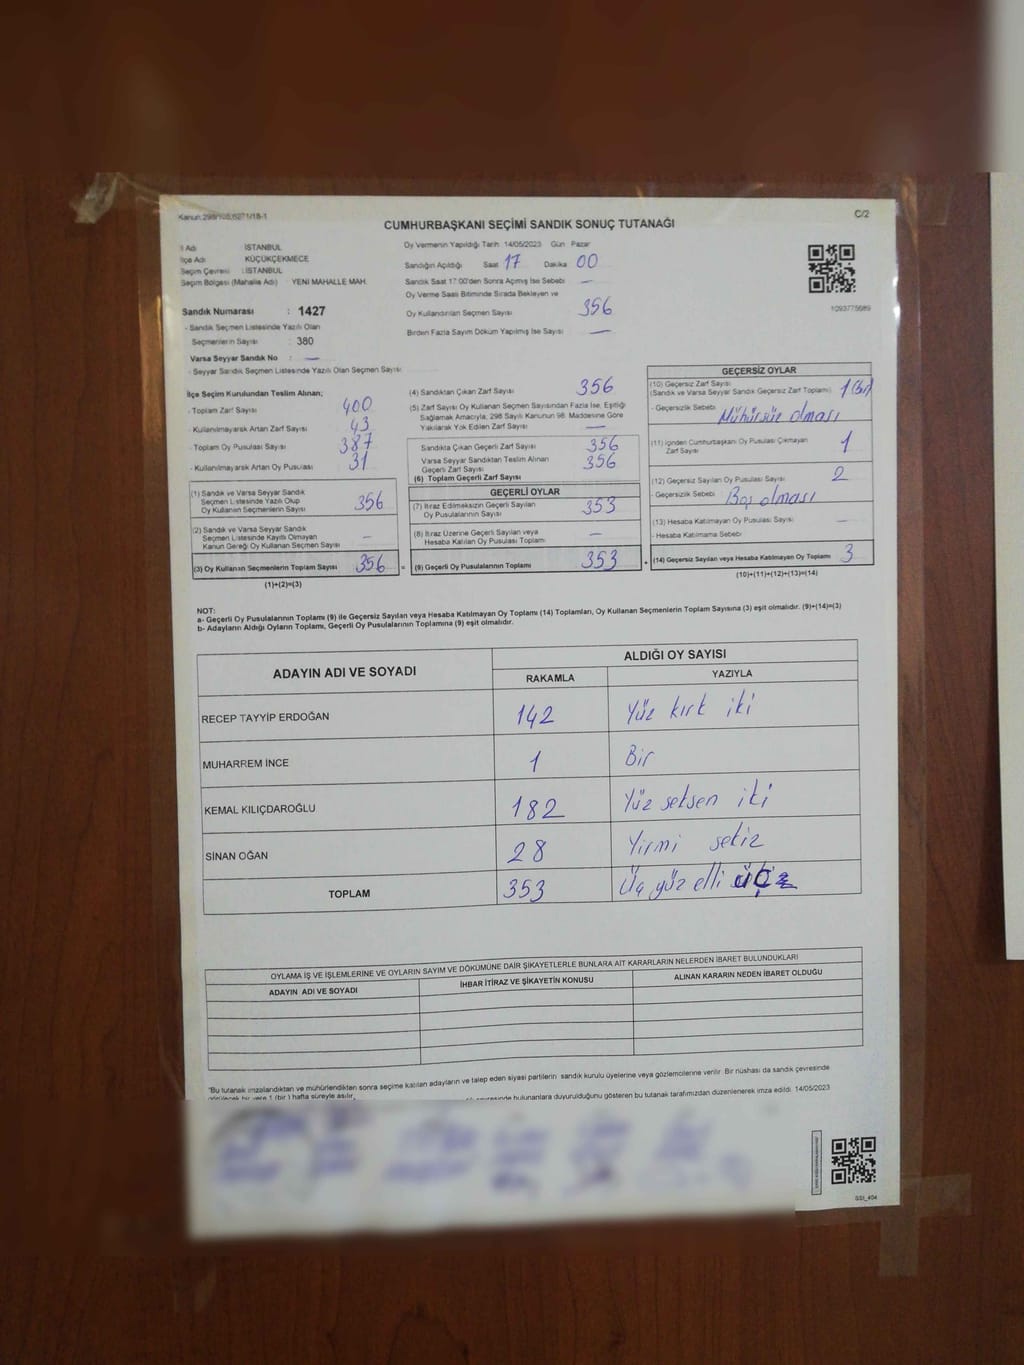 Kanun:298/105;6271/18-1
C/2
CUMHURBAŞKANI SEÇİMİ SANDIK SONUÇ TUTANAĞI
İl Adı İSTANBUL
İlçe Adı KÜÇÜKÇEKMECE
Seçim Çevresi : İSTANBUL
Seçim Bölgesi (Mahalle Adı) : YENİ MAHALLE MAH.
Sandık Numarası : 1427
- Sandık Seçmen Listesinde Yazılı Olan
Seçmenlerin Sayısı : 380
Varsa Seyyar Sandık No : —
- Seyyar Sandık Seçmen Listesinde Yazılı Olan Seçmen Sayısı :
Oy Vermenin Yapıldığı Tarih 14/05/2023 Gün Pazar
Sandığın Açıldığı Saat 17 Dakika 00
Sandık Saat 17:00'den Sonra Açılmış İse Sebebi —
Oy Verme Saati Bitiminde Sırada Bekleyen ve
Oy Kullandırılan Seçmen Sayısı 356
Birden Fazla Sayım Döküm Yapılmış İse Sayısı —
1093775689
İlçe Seçim Kurulundan Teslim Alınan;
- Toplam Zarf Sayısı 400
- Kullanılmayarak Artan Zarf Sayısı 43
- Toplam Oy Pusulası Sayısı 387
- Kullanılmayarak Artan Oy Pusulası 31
(1) Sandık ve Varsa Seyyar Sandık
Seçmen Listesinde Yazılı Olup
Oy Kullanan Seçmenlerin Sayısı 356
(2) Sandık ve Varsa Seyyar Sandık
Seçmen Listesinde Kayıtlı Olmayan
Kanun Gereği Oy Kullanan Seçmen Sayısı —
(3) Oy Kullanan Seçmenlerin Toplam Sayısı 356 =
(1)+(2)=(3)
(4) Sandıktan Çıkan Zarf Sayısı 356
(5) Zarf Sayısı Oy Kullanan Seçmen Sayısından Fazla İse, Eşitliği
Sağlamak Amacıyla, 298 Sayılı Kanunun 98. Maddesine Göre
Yakılarak Yok Edilen Zarf Sayısı —
Sandıkta Çıkan Geçerli Zarf Sayısı 356
Varsa Seyyar Sandıktan Teslim Alınan
Geçerli Zarf Sayısı 356
(6) Toplam Geçerli Zarf Sayısı
GEÇERLİ OYLAR
(7) İtiraz Edilmeksizin Geçerli Sayılan
Oy Pusulalarının Sayısı 353
(8) İtiraz Üzerine Geçerli Sayılan veya
Hesaba Katılan Oy Pusulası Toplamı —
(9) Geçerli Oy Pusulalarının Toplamı 353 +
GEÇERSİZ OYLAR
(10) Geçersiz Zarf Sayısı
(Sandık ve Varsa Seyyar Sandık Geçersiz Zarf Toplamı) 1 (bir)
- Geçersizlik Sebebi: Mühürsüz olması
(11) İçinden Cumhurbaşkanı Oy Pusulası Çıkmayan
Zarf Sayısı 1
(12) Geçersiz Sayılan Oy Pusulası Sayısı 2
- Geçersizlik Sebebi : Boş olması
(13) Hesaba Katılmayan Oy Pusulası Sayısı —
- Hesaba Katılmama Sebebi
(14) Geçersiz Sayılan veya Hesaba Katılmayan Oy Toplamı 3
(10)+(11)+(12)+(13)=(14)
NOT:
a- Geçerli Oy Pusulalarının Toplamı (9) ile Geçersiz Sayılan veya Hesaba Katılmayan Oy Toplamı (14) Toplamları, Oy Kullanan Seçmenlerin Toplam Sayısına (3) eşit olmalıdır. (9)+(14)=(3)
b- Adayların Aldığı Oyların Toplamı, Geçerli Oy Pusulalarının Toplamına (9) eşit olmalıdır.
ADAYIN ADI VE SOYADI
ALDIĞI OY SAYISI
RAKAMLA YAZIYLA
RECEP TAYYİP ERDOĞAN 142 Yüz kırk iki
MUHARREM İNCE 1 Bir
KEMAL KILIÇDAROĞLU 182 Yüz seksen iki
SİNAN OĞAN 28 Yirmi sekiz
TOPLAM 353 Üç yüz elli üç
OYLAMA İŞ VE İŞLEMLERİNE VE OYLARIN SAYIM VE DÖKÜMÜNE DAİR ŞİKAYETLERLE BUNLARA AİT KARARLARIN NELERDEN İBARET BULUNDUKLARI
ADAYIN ADI VE SOYADI İHBAR İTİRAZ VE ŞİKAYETİN KONUSU ALINAN KARARIN NEDEN İBARET OLDUĞU
"Bu tutanak imzalandıktan ve mühürlendikten sonra seçime katılan adayların ve talep eden siyasi partilerin sandık kurulu üyelerine veya gözlemcilerine verilir. Bir nüshası da sandık çevresinde
görülecek bir yere 1 (bir) hafta süreyle asılır. bulunanlara duyurulduğunu gösteren bu tutanak tarafımızdan düzenlenerek imza edildi. 14/05/2023
GSI_404